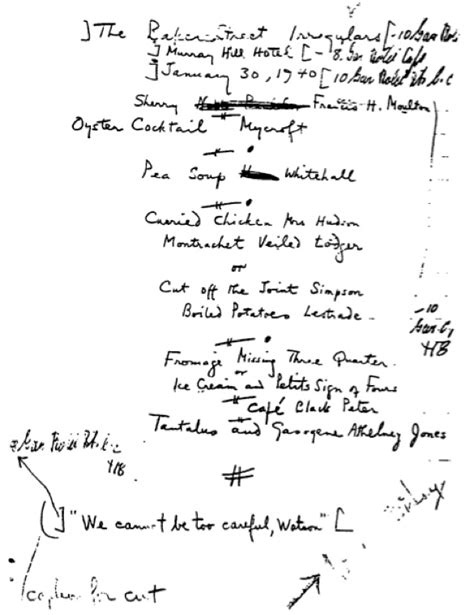 ] The Baker Street Irregulars [ - 10
] Murray Hill Hotel [ - 8
] January 30, 1940 [ 10
Sherry Francis H. Moulton
#
Oyster Cocktail Mycroft
#
Pea Soup Whitehall
#
Curried Chicken Mrs Hudson
Montrachet Veiled Lodger
or
Cut off the Joint Simpson
Boiled Potatoes Lestrade
- 10
#
Fromage Missing Three Quarter
or
Ice Cream and Petits Sign of Fours
#
Café Black Peter
#
Tantalus and Gasogene Athelney Jones
#
] "We cannot be too careful, Watson" [
for cut